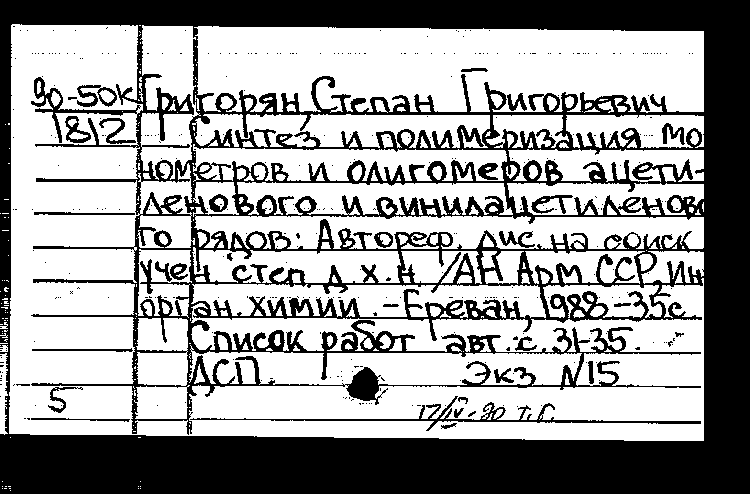 90-50К Григорян, Степан Григорьевич
1812 Синтез и полимеризация мо
нометров и олигомеров ацети-
ленового и винилацетиленово
го рядов: Автореф. дис. на соиск
учен. степ. д. х. н. /АН Арм. ССР, Ин
орган. химии. - Ереван, 1988 - 35с.
Список работ авт. с. 31-35.
ДСП. Экз N15
5 17/IV-90 Т.Г.